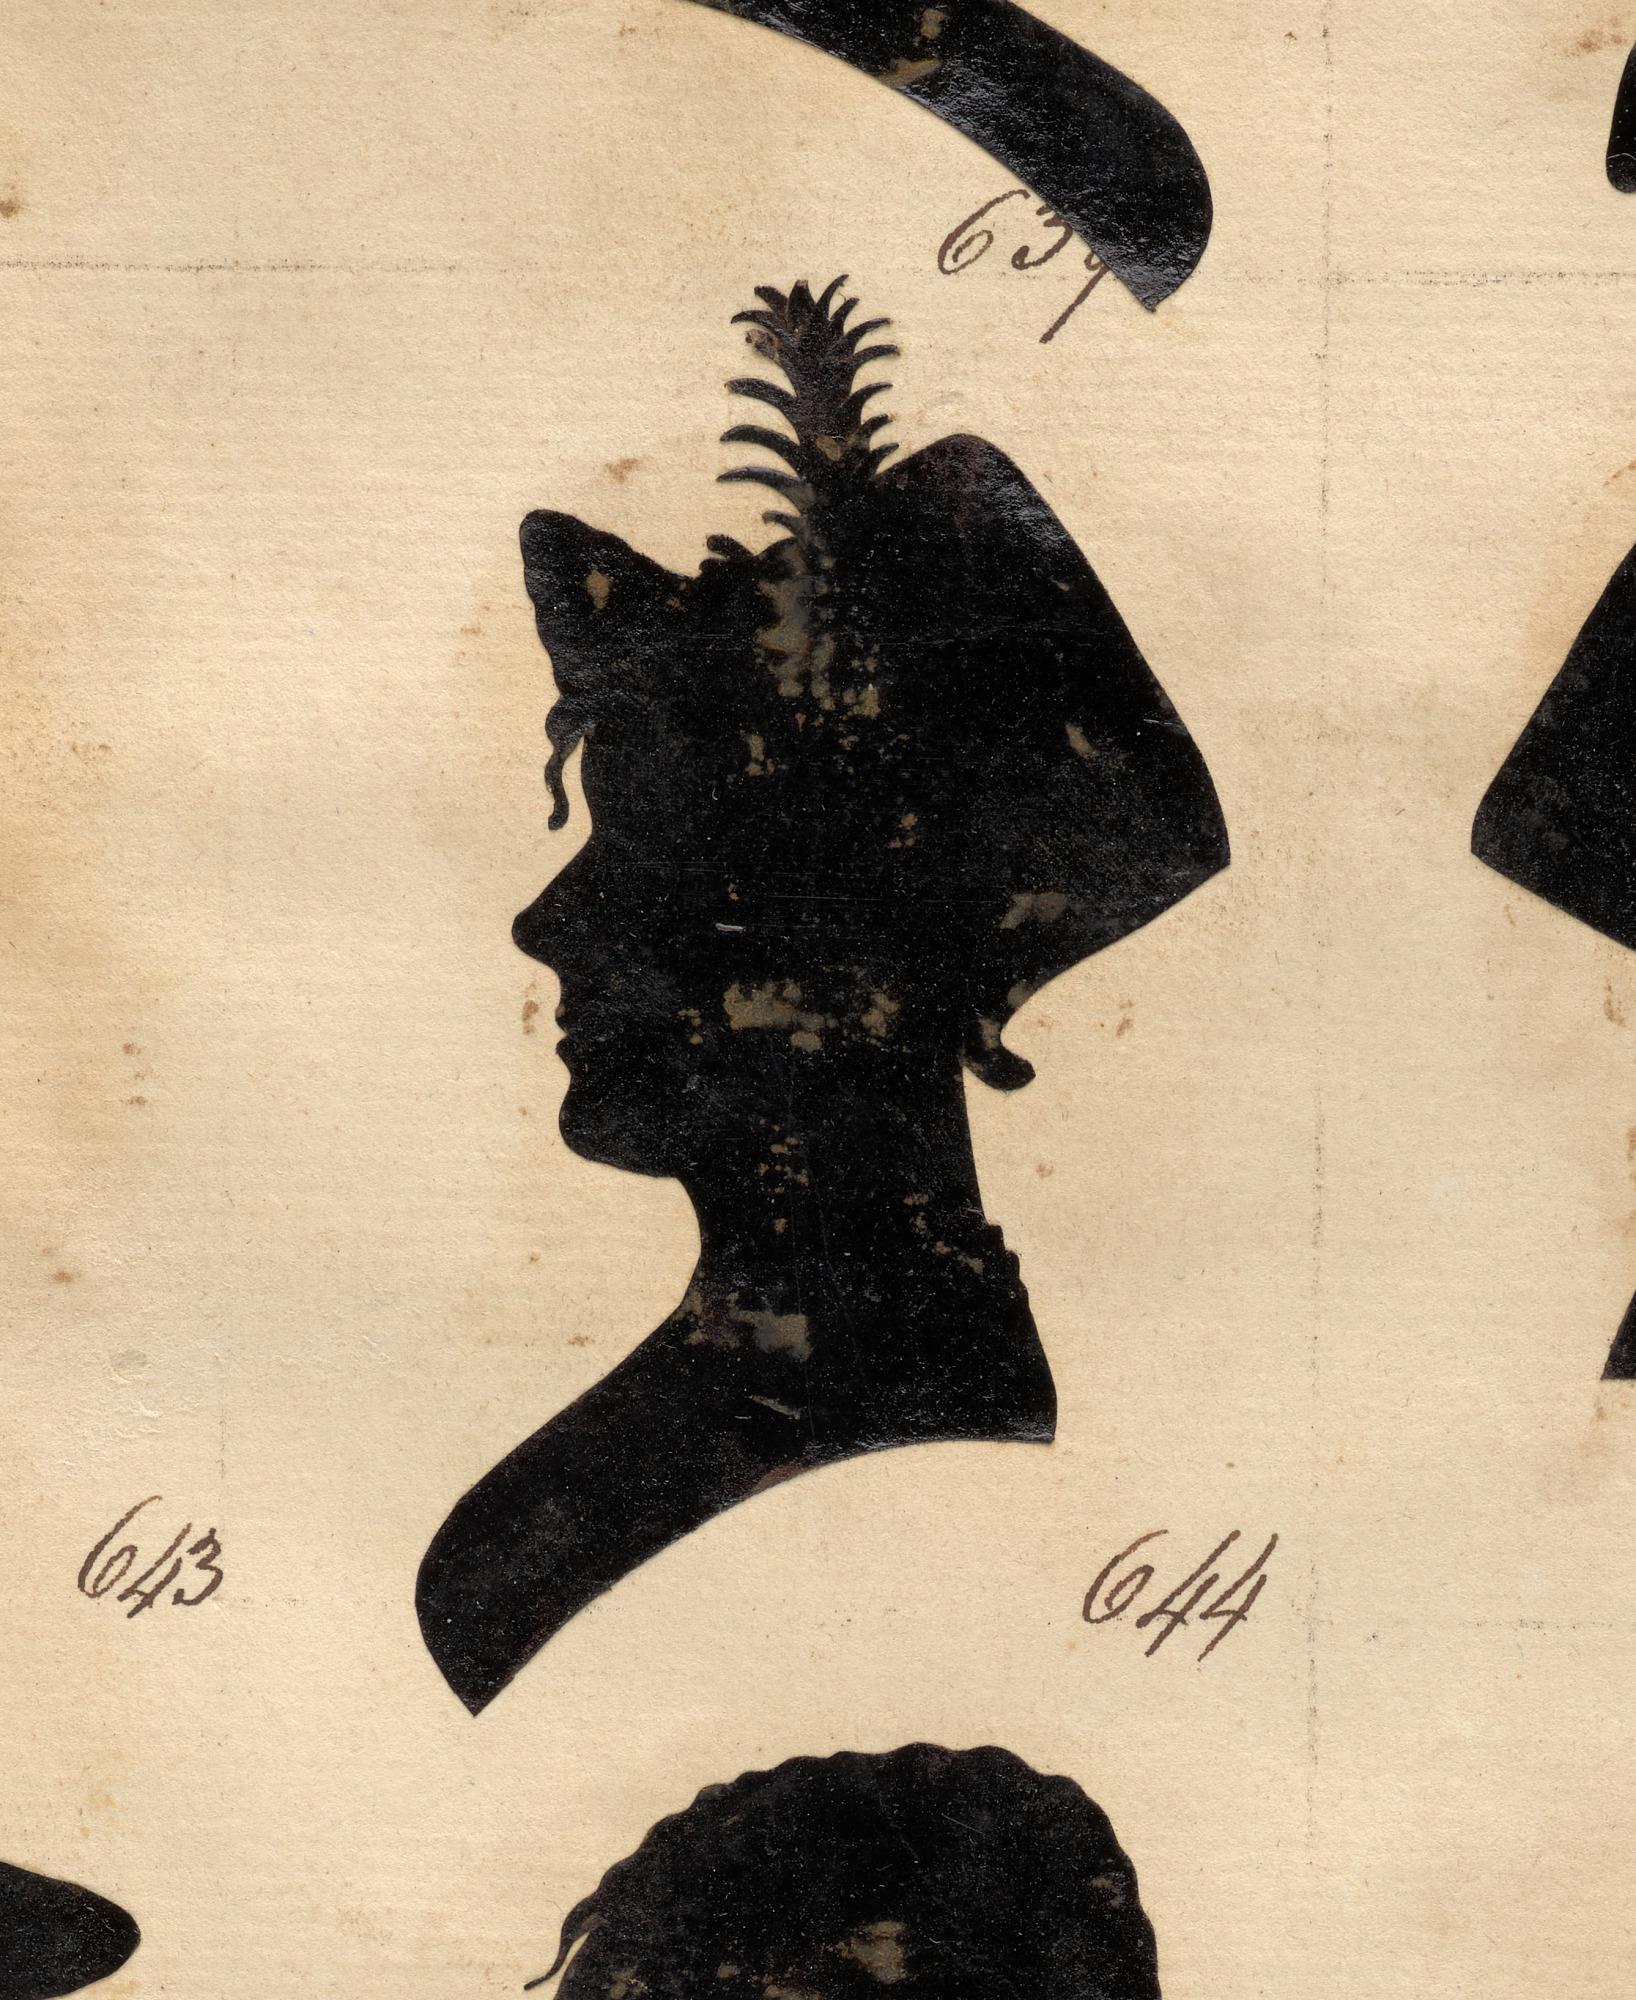 639
643
644